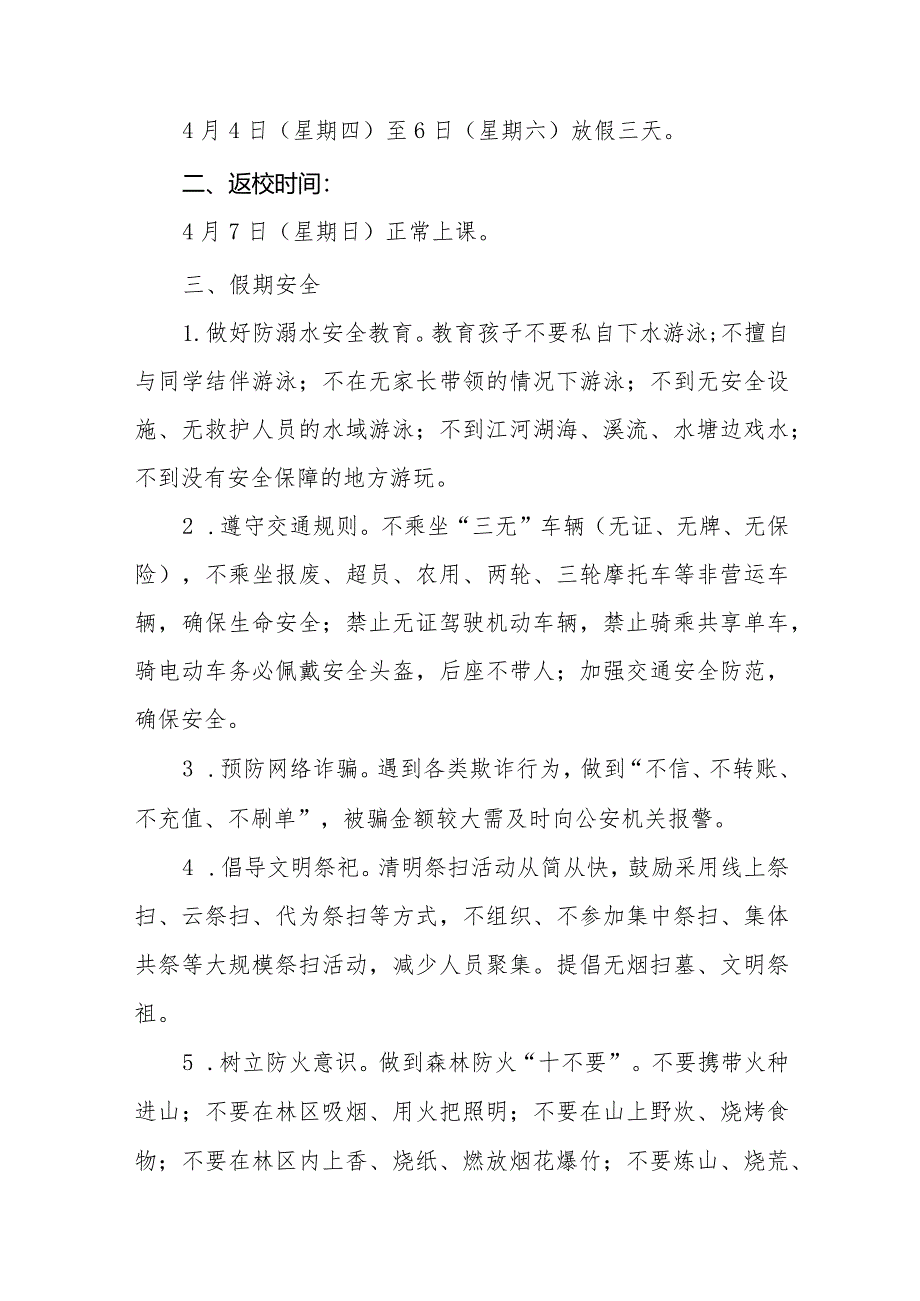 4月4日（星期四）至6日（星期六）放假三天。
二、返校时间：
4月7日（星期日）正常上课。
三、假期安全
1.做好防溺水安全教育。教育孩子不要私自下水游泳;不擅自
与同学结伴游泳；不在无家长带领的情况下游泳；不到无安全设
施、无救护人员的水域游泳；不到江河湖海、溪流、水塘边戏水；
不到没有安全保障的地方游玩。
2.遵守交通规则。不乘坐“三无”车辆（无证、无牌、无保
险），不乘坐报废、超员、农用、两轮、三轮摩托车等非营运车
辆，确保生命安全；禁止无证驾驶机动车辆，禁止骑乘共享单车，
骑电动车务必佩戴安全头盔，后座不带人；加强交通安全防范，
确保安全。
3.预防网络诈骗。遇到各类欺诈行为，做到“不信、不转账、
不充值、不刷单”，被骗金额较大需及时向公安机关报警。
4.倡导文明祭祀。清明祭扫活动从简从快，鼓励采用线上祭
扫、云祭扫、代为祭扫等方式，不组织、不参加集中祭扫、集体
共祭等大规模祭扫活动，减少人员聚集。提倡无烟扫墓、文明祭
祖。
5.树立防火意识。做到森林防火“十不要”。不要携带火种
进山；不要在林区吸烟、用火把照明；不要在山上野炊、烧烤食
物；不要在林区内上香、烧纸、燃放烟花爆竹；不要炼山、烧荒、